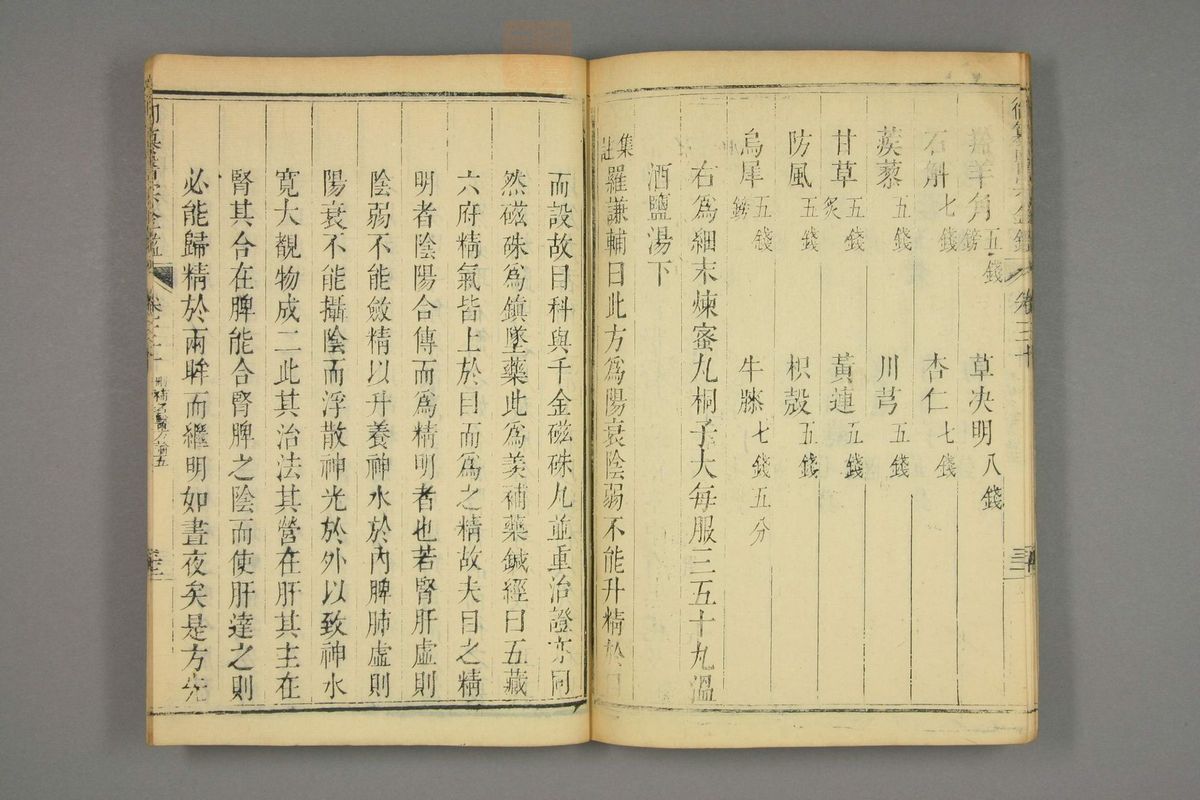 羚羊角五錢鎊 草决明八錢
石斛七錢 杏仁七錢
蒺藜五錢 川芎五錢
甘草五錢炙 黃連五錢
防風五錢 枳殼五錢
烏犀五錢鎊 牛膝七錢五分
右爲細末煉蜜丸桐子大每服三五十丸溫
酒鹽湯下
集註羅謙輔曰此方爲陽衰陰弱不能升精於目
而設故目科與千金磁硃丸並重治證亦同
然磁硃爲鎮墜藥此爲羡補藥鍼經曰五藏
六府精氣皆上於目而爲之精故夫目之精
明者陰陽合傳而爲精明者也若腎肝虛則
陰弱不能斂精以升養神水於內脾肺虛則
陽衰不能攝陰而浮散神光於外以致神水
寬大覩物成二此其治法其營在肝其主在
腎其合在脾能合腎脾之陰而使肝達之則
必能歸精於兩眸而繼明如晝夜矣是方先
卷三十
卷三十